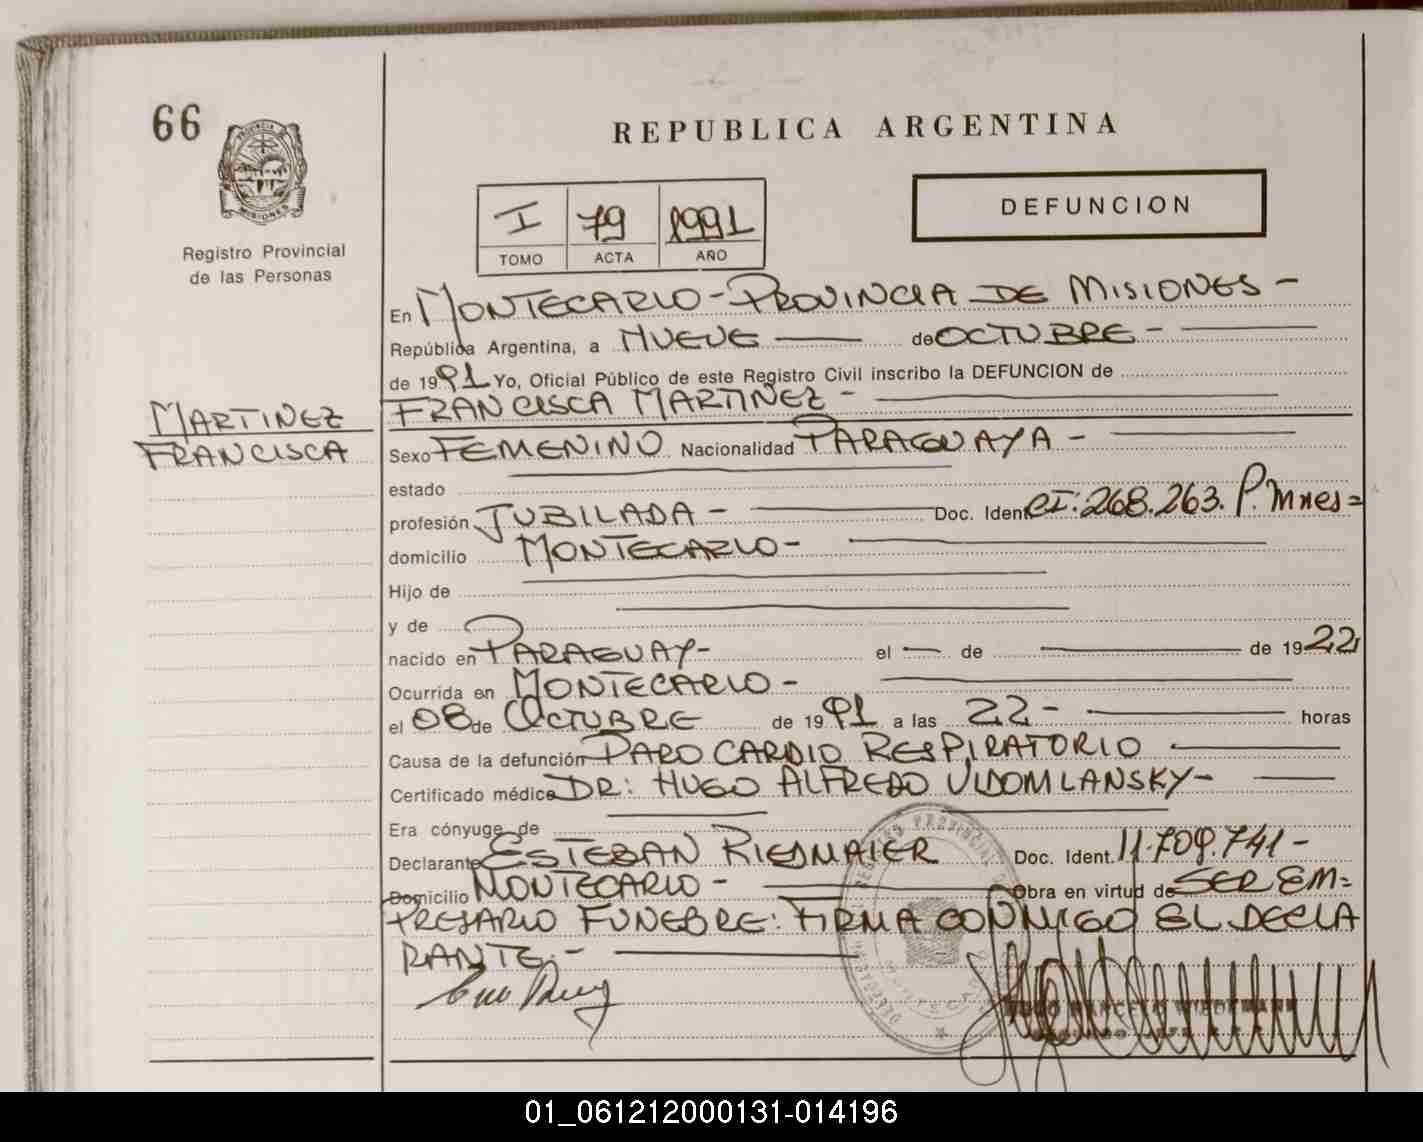 66
REPUBLICA ARGENTINA
PROVINCIA DE
MISIONES
Registro Provincial
de las Personas
I 79 1991
TOMO ACTA AÑO
DEFUNCION
En MONTECARLO - PROVINCIA DE MISIONES -
República Argentina, a NUEVE de OCTUBRE -
de 1991 Yo, Oficial Público de este Registro Civil inscribo la DEFUNCION de
MARTINEZ
FRANCISCA
FRANCISCA MARTINEZ -
Sexo FEMENINO Nacionalidad PARAGUAYA -
estado
profesión JUBILADA - Doc. Ident. CI: 268.263. P. Mnes=
domicilio MONTECARLO -
Hijo de
y de
nacido en PARAGUAY - el — de — de 1922
Ocurrida en MONTECARLO -
el 08 de OCTUBRE de 1991 a las 22 - horas
Causa de la defunción PARO CARDIO RESPIRATORIO
Certificado médico DR: HUGO ALFREDO VDOMLANSKY -
Era cónyuge de
Declarante ESTEBAN RIEDMAIER Doc. Ident. 11.709.741 -
Domicilio MONTECARLO - Obra en virtud de SER EM=
PRESARIO FUNEBRE: FIRMA CONMIGO EL DECLA
RANTE. -
01_061212000131-014196